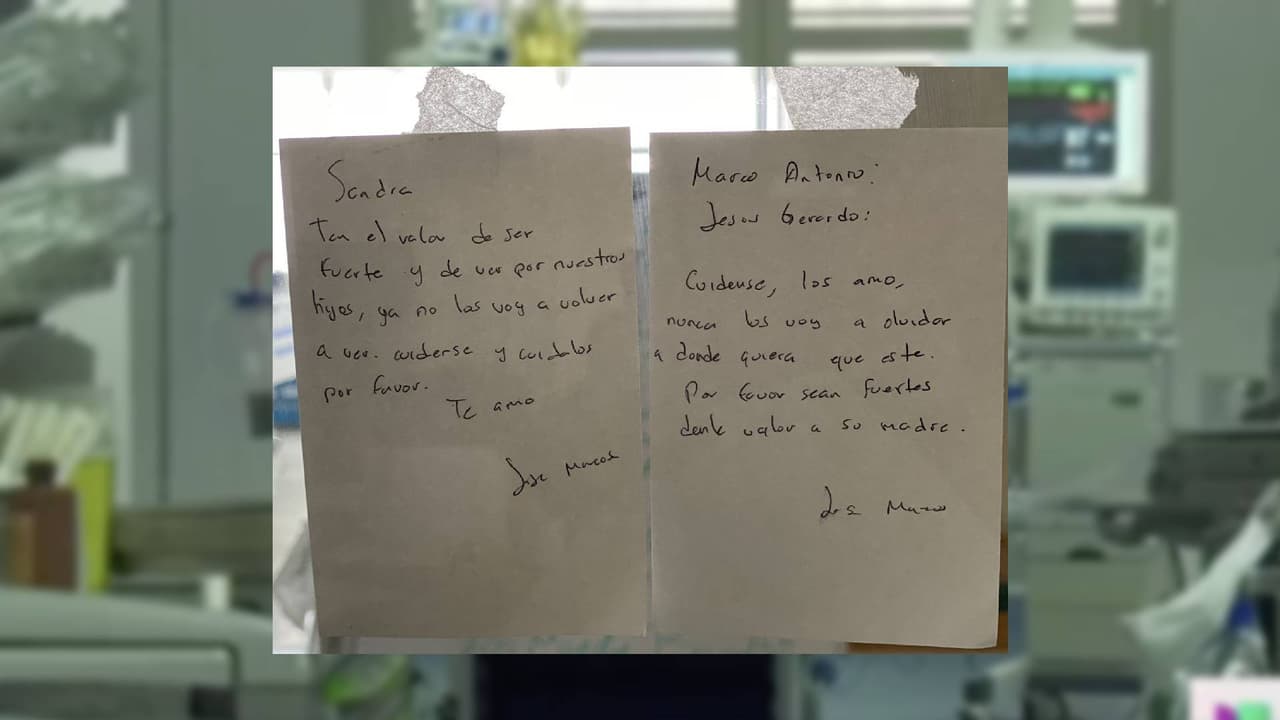 Sandra
Ten el valor de ser
fuerte y de ver por nuestros
hijos, ya no los voy a volver
a ver. cuiderse y cuidalos
por favor.
Te amo
Jose Marcos
Marco Antonio:
Jesus Gerardo:
Cuidense, los amo,
nunca los voy a olvidar
a donde quiera que este.
Por favor sean fuertes
denle valor a su madre.
Jose Marcos